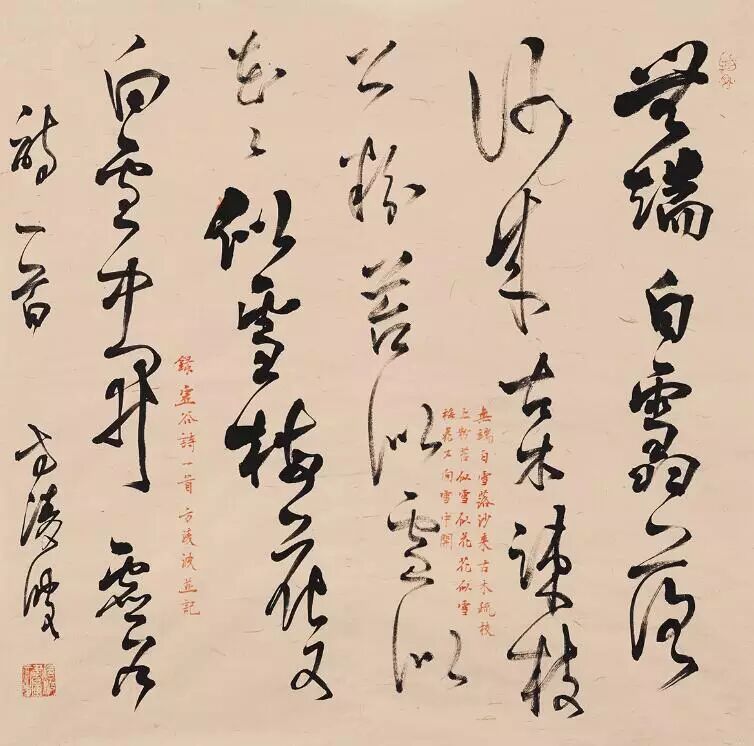 無端白雪落
沙来古木疎枝
上粉苔似雪似
花〻似雪梅花又
向雪中開 虚谷
詩一首 方凌波
無端白雪落沙来古木疏枝
上粉苔似雪似花花似雪
梅花又向雪中開
錄虚谷詩一首 方凌波並記